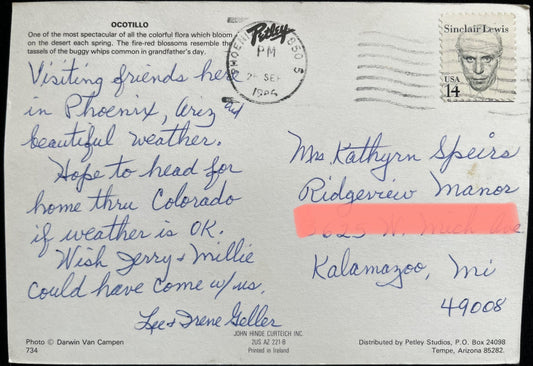 OCOTILLO
One of the most spectacular of all the colorful flora which bloom
on the desert each spring. The fire-red blossoms resemble the
tassels of the buggy whips common in grandfather's day.
Visiting friends here
in Phoenix, Ariz and
beautiful weather.
Hope to head for
home thru Colorado
if weather is OK.
Wish Jerry + Millie
could have come w/us.
Lee + Irene Geller
Petley
PM
SEP
Sinclair Lewis
USA
14
Mrs. Kathyrn Speirs
Ridgeview Manor
Kalamazoo, Mi
49008
Photo © Darwin Van Campen
734
JOHN HINDE CURTEICH INC.
2US AZ 221-B
Printed in Ireland
Distributed by Petley Studios, P.O. Box 24098
Tempe, Arizona 85282.